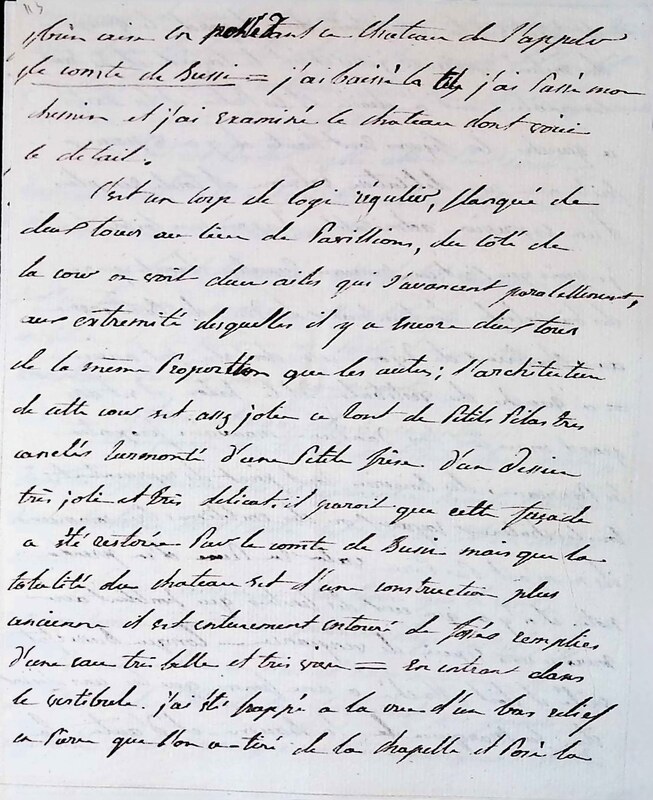 bien aise en possedant ce chateau de s'appeler
le comte de Bussi = j'ai baissé la tête j'ai passé mon
chemin et j'ai examiné le chateau dont voici
le detail.
C'est un corps de logi régulier, flanqué de
deux tours au lieu de Pavillions, du coté de
la cour on voit deux ailes qui s'avancent paralellement,
aux extremité desquelles il y a encore deux tours
de la même Proportion que les autres; l'architecture
de cette cour est assez jolie ce sont de Petits Pilastres
canelés surmonté d'une Petite frise d'un dessein
très jolie et très délicat. il paroit que cette façade
a été restorée Par le comte de Bussi mais que la
totalité du chateau est d'une construction plus
ancienne il est entierement entouré de fossés remplies
d'une eau tres belle et tres vive = en entrant dans
le vestibule. j'ai été frappé a la vue d'un bas relief
en Pierre que l'on a tiré de la chapelle et Posé la